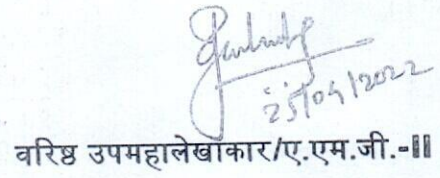 25/04/2022
वरिष्ठ उपमहालेखाकार/ए.एम.जी.-II